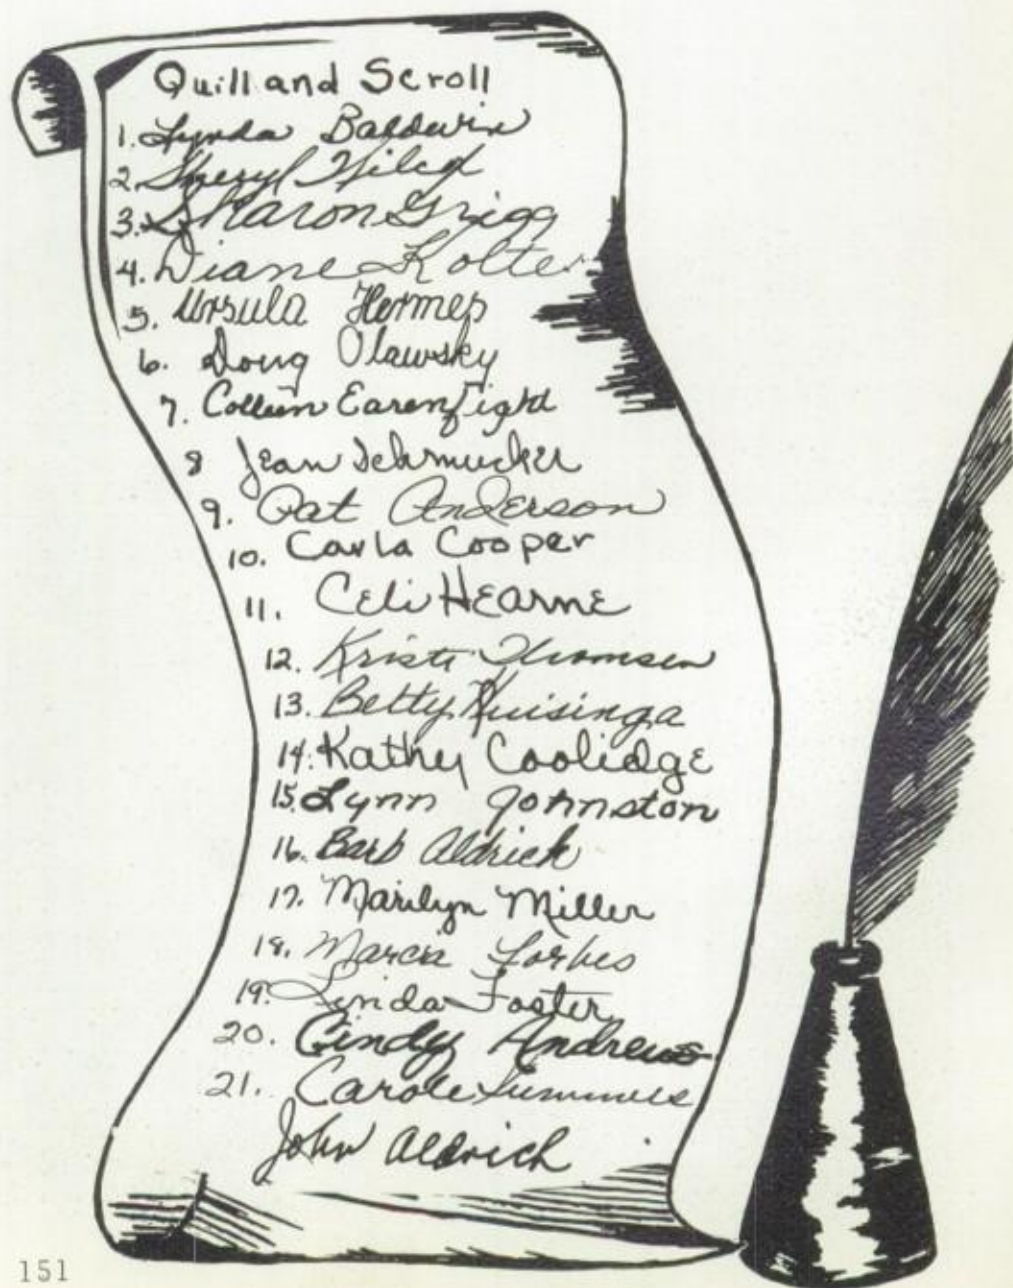 Quill and Scroll
1. Lynda Baldwin
2. Sheryl
3. Sharon Grigg
4. Diane Kolter
5. Ursula Hermes
6. Doug Olawsky
7. Colleen Earenfight
8 Jean Schmucker
9. Pat Anderson
10. Carla Cooper
11. Celi HEarnE
12. Kristi Thomsen
13. Betty Huisinga
14. Kathy Coolidge
15. Lynn Johnston
16. Barb Aldrich
17. Marilyn Miller
18. Marcia Forbes
19. Linda Foster
20. Cindy Andrews
21. Carole Summers
John Aldrich
151